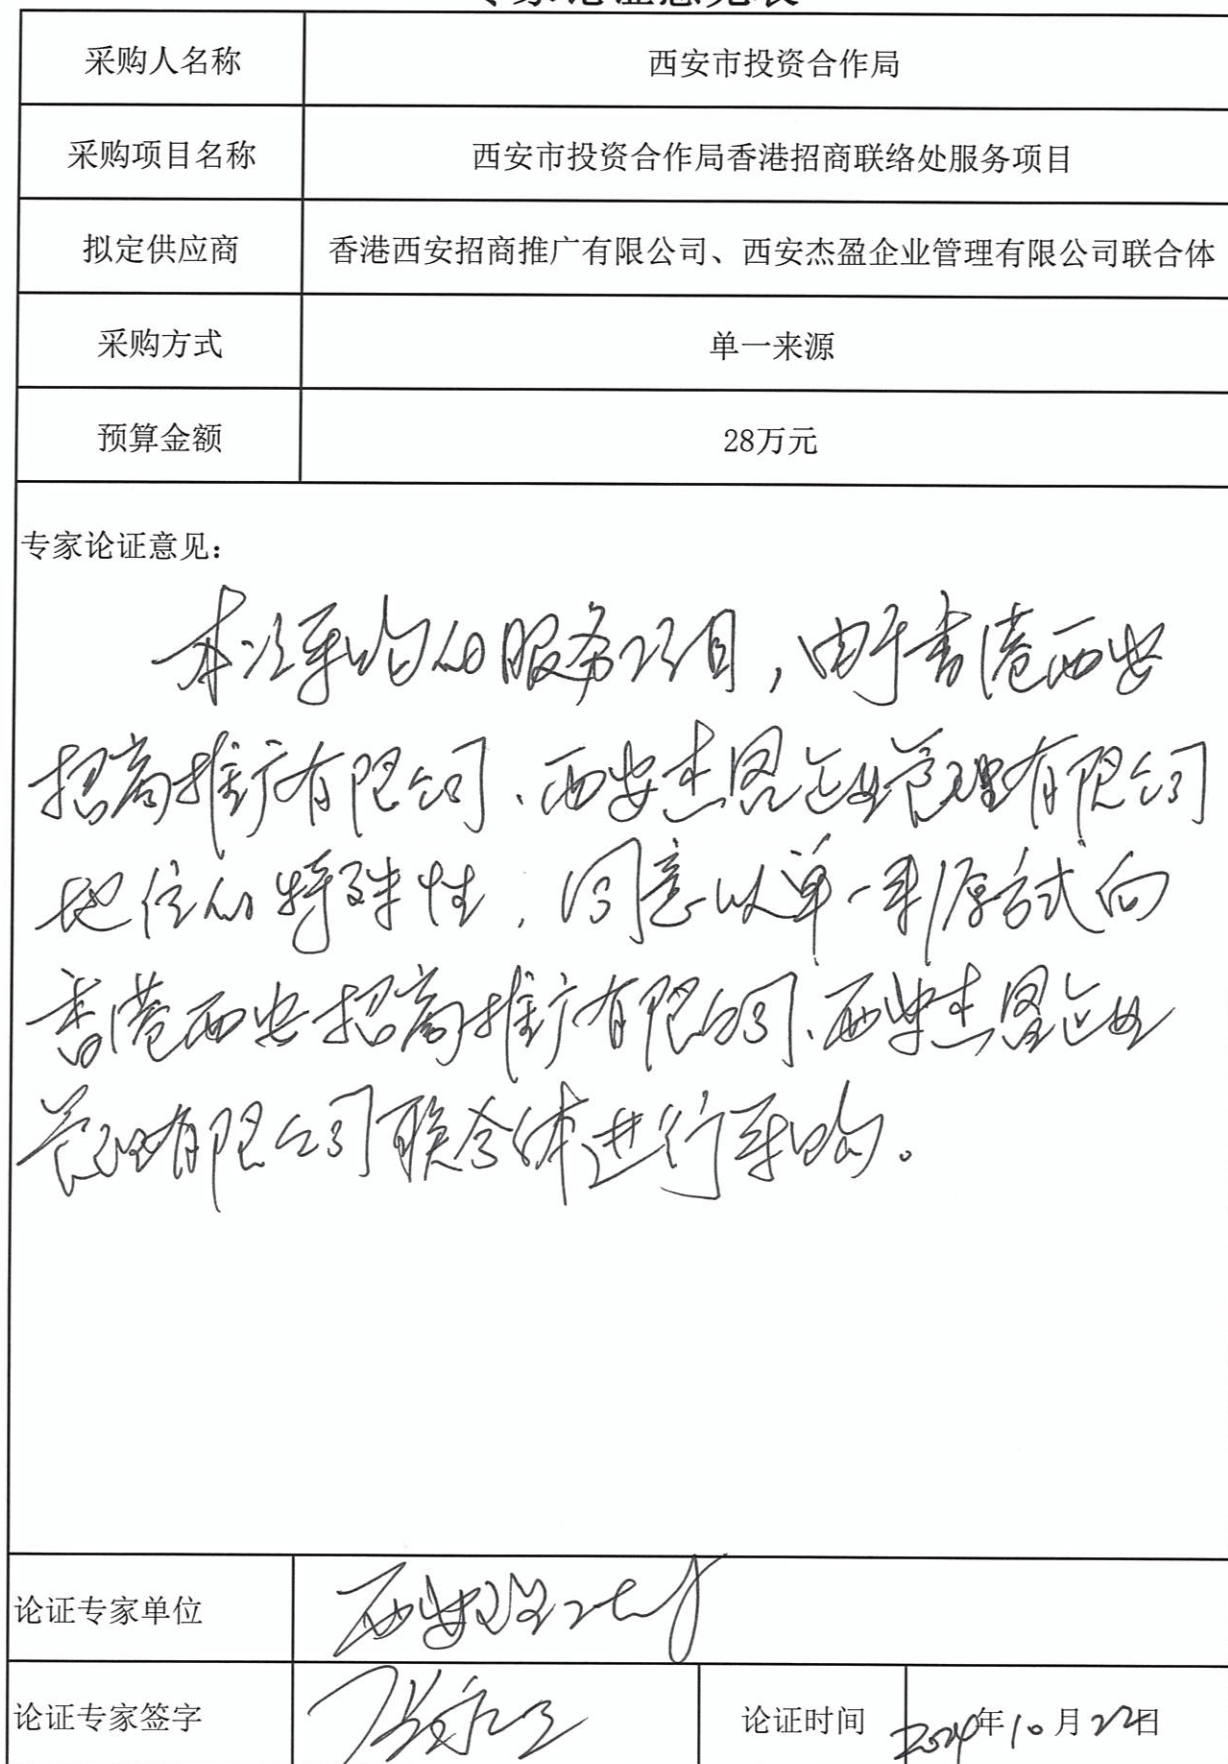 专家论证意见表
采购人名称 西安市投资合作局
采购项目名称 西安市投资合作局香港招商联络处服务项目
拟定供应商 香港西安招商推广有限公司、西安杰盈企业管理有限公司联合体
采购方式 单一来源
预算金额 28万元
专家论证意见：
本次采购的服务项目，由于香港西安
招商推广有限公司、西安杰盈企业管理有限公司
地位的特殊性，同意以单一来源方式向
香港西安招商推广有限公司、西安杰盈企业
管理有限公司联合体进行采购。
论证专家单位 西安理工大学
论证专家签字 论证时间 2024年10月22日